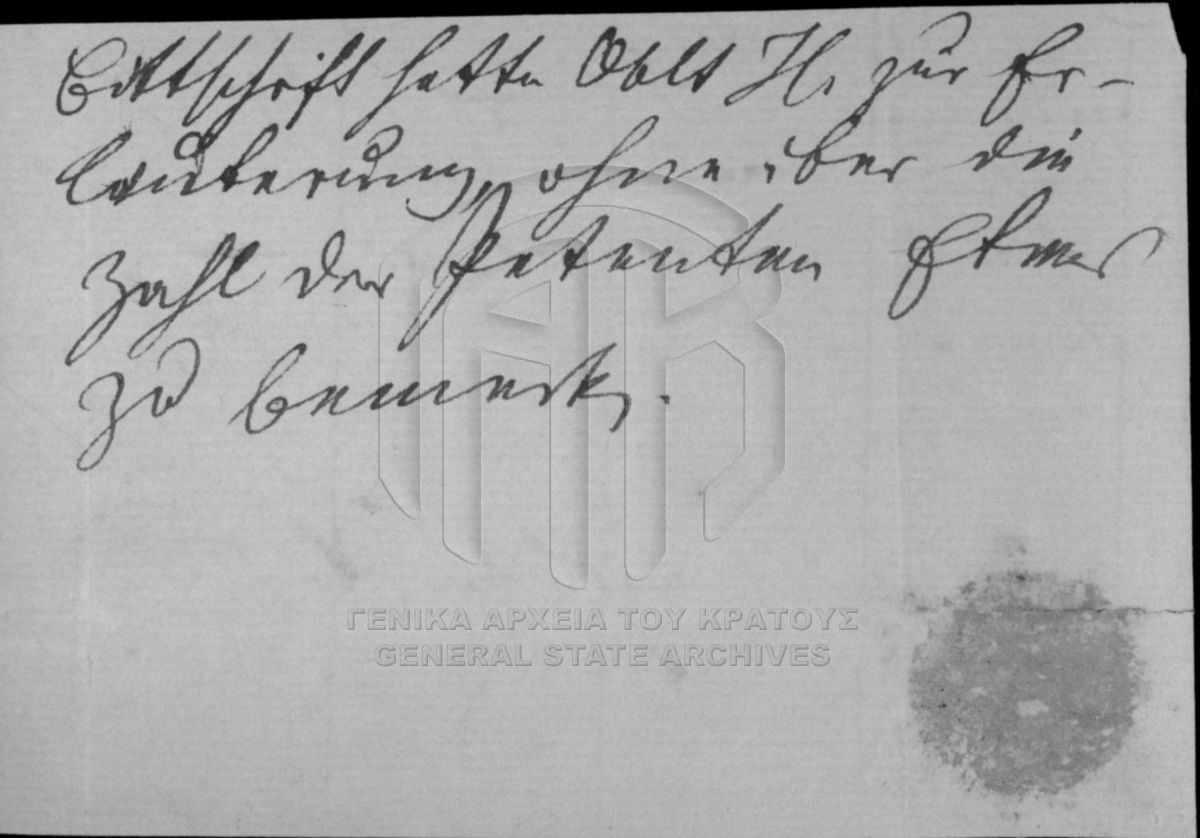 Bittschrift hatte Oblt H. zur Er-
läuterung, ohne über die
Zahl der Petenten Etwas
zu bemerken.
ΓΕΝΙΚΑ ΑΡΧΕΙΑ ΤΟΥ ΚΡΑΤΟΥΣ
GENERAL STATE ARCHIVES